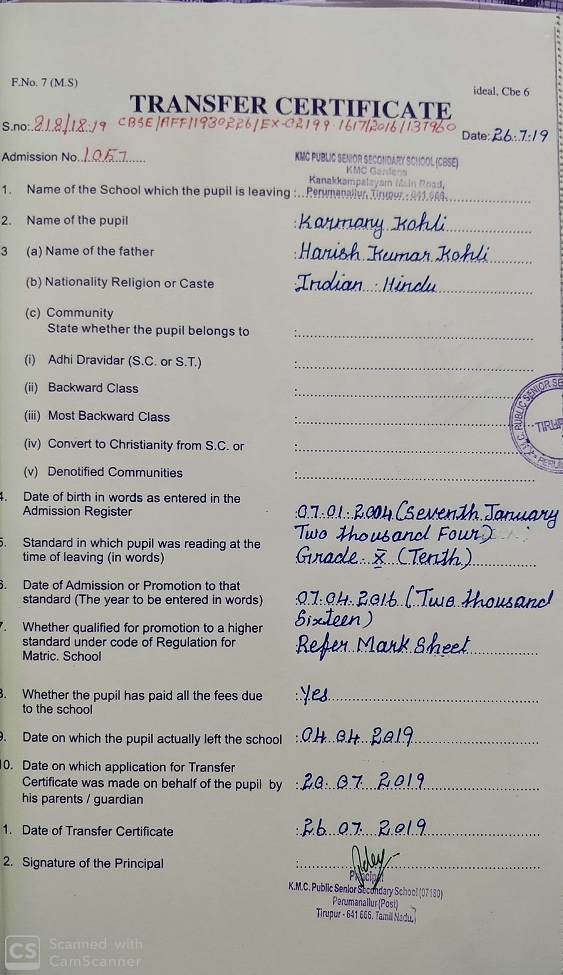 F.No. 7 (M.S)
ideal, Cbe 6
TRANSFER CERTIFICATE
S.no: 818/18.19 CBSE/AFF/1930226/EX-02199-1617/2016/137960
Date: 26.7.19
Admission No. 1057
KMC PUBLIC SENIOR SECONDARY SCHOOL (CBSE)
KMC Gardens
Kanakkampalayam Main Road,
1. Name of the School which the pupil is leaving : Perumanallur, Tirupur - 641 666.
2. Name of the pupil : Karmany Kohli
3 (a) Name of the father : Harish Kumar Kohli
(b) Nationality Religion or Caste : Indian : Hindu
(c) Community
State whether the pupil belongs to :
(i) Adhi Dravidar (S.C. or S.T.) :
(ii) Backward Class :
(iii) Most Backward Class :
(iv) Convert to Christianity from S.C. or :
(v) Denotified Communities :
4. Date of birth in words as entered in the
Admission Register : 07.01.2004 (Seventh January
Two thousand Four)
5. Standard in which pupil was reading at the
time of leaving (in words) Grade - X (Tenth)
6. Date of Admission or Promotion to that
standard (The year to be entered in words) : 07.04.2016 (Two thousand
Sixteen)
7. Whether qualified for promotion to a higher
standard under code of Regulation for
Matric. School Refer Mark Sheet
8. Whether the pupil has paid all the fees due
to the school : Yes
9. Date on which the pupil actually left the school : 04.04.2019
10. Date on which application for Transfer
Certificate was made on behalf of the pupil by
his parents / guardian : 20.07.2019
1. Date of Transfer Certificate : 26.07.2019
2. Signature of the Principal :
Principal
K.M.C. Public Senior Secondary School (07180)
Perumanallur (Post)
Tirupur - 641 666. Tamil Nadu.
CS Scanned with
CamScanner